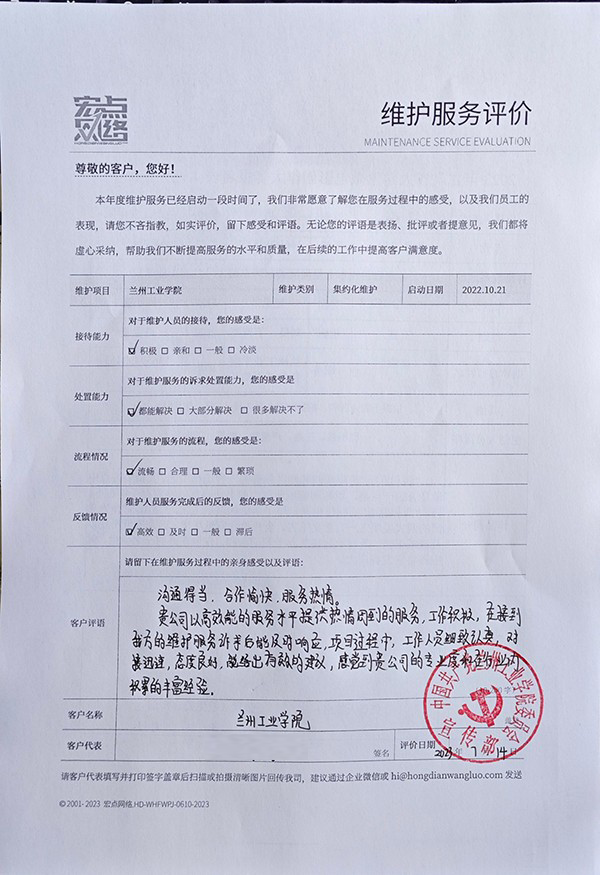 宏点
网络
维护服务评价
MAINTENANCE SERVICE EVALUATION
尊敬的客户，您好！
本年度维护服务已经启动一段时间了，我们非常愿意了解您在服务过程中的感受，以及我们员工的
表现，请您不吝指教，如实评价，留下感受和评语。无论您的评语是表扬、批评或者提意见，我们都将
虚心采纳，帮助我们不断提高服务的水平和质量，在后续的工作中提高客户满意度。
维护项目 兰州工业学院 维护类别 集约化维护 启动日期 2022.10.21
接待能力
对于维护人员的接待，您的感受是：
☑ 积极 □ 亲和 □ 一般 □ 冷淡
处置能力
对于维护服务的诉求处置能力，您的感受是
☑ 都能解决 □ 大部分解决 □ 很多解决不了
流程情况
对于维护服务的流程，您的感受是：
☑ 流畅 □ 合理 □ 一般 □ 繁琐
反馈情况
维护人员服务完成后的反馈，您的感受是
☑ 高效 □ 及时 □ 一般 □ 滞后
客户评语
请留下在维护服务过程中的亲身感受以及评语：
沟通得当、合作愉快、服务热情。
贵公司以高效能的服务水平提供热情周到的服务，工作积极，在接到
我方的维护服务诉求后能及时响应，项目过程中，工作人员细致认真，对
接迅速，态度良好，能给出有效的建议，感觉到贵公司的专业度和在行业内
积累的丰富经验。
中国共产党兰州工业学院委员会
宣传部
客户名称 兰州工业学院
客户代表 签名 评价日期 2023年 7 14日
请客户代表填写并打印签字盖章后扫描或拍摄清晰图片回传我司，建议通过企业微信或 hi@hongdianwangluo.com 发送
©2001- 2023 宏点网络.HD-WHFWPJ-0610-2023